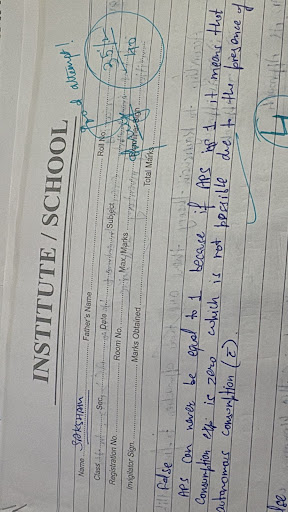 good attempt!
INSTITUTE / SCHOOL
Name SAKSHAM Father's Name
Class Sec. Date Subject Roll No.
Registration No. Room No. Max. Marks
Invigilator Sign. Marks Obtained Total Marks
40
False
APS can never be equal to 1 because if APS is 1 it means that
consumption is zero which is not possible due to the presence of
autonomous consumption (c̅).
4